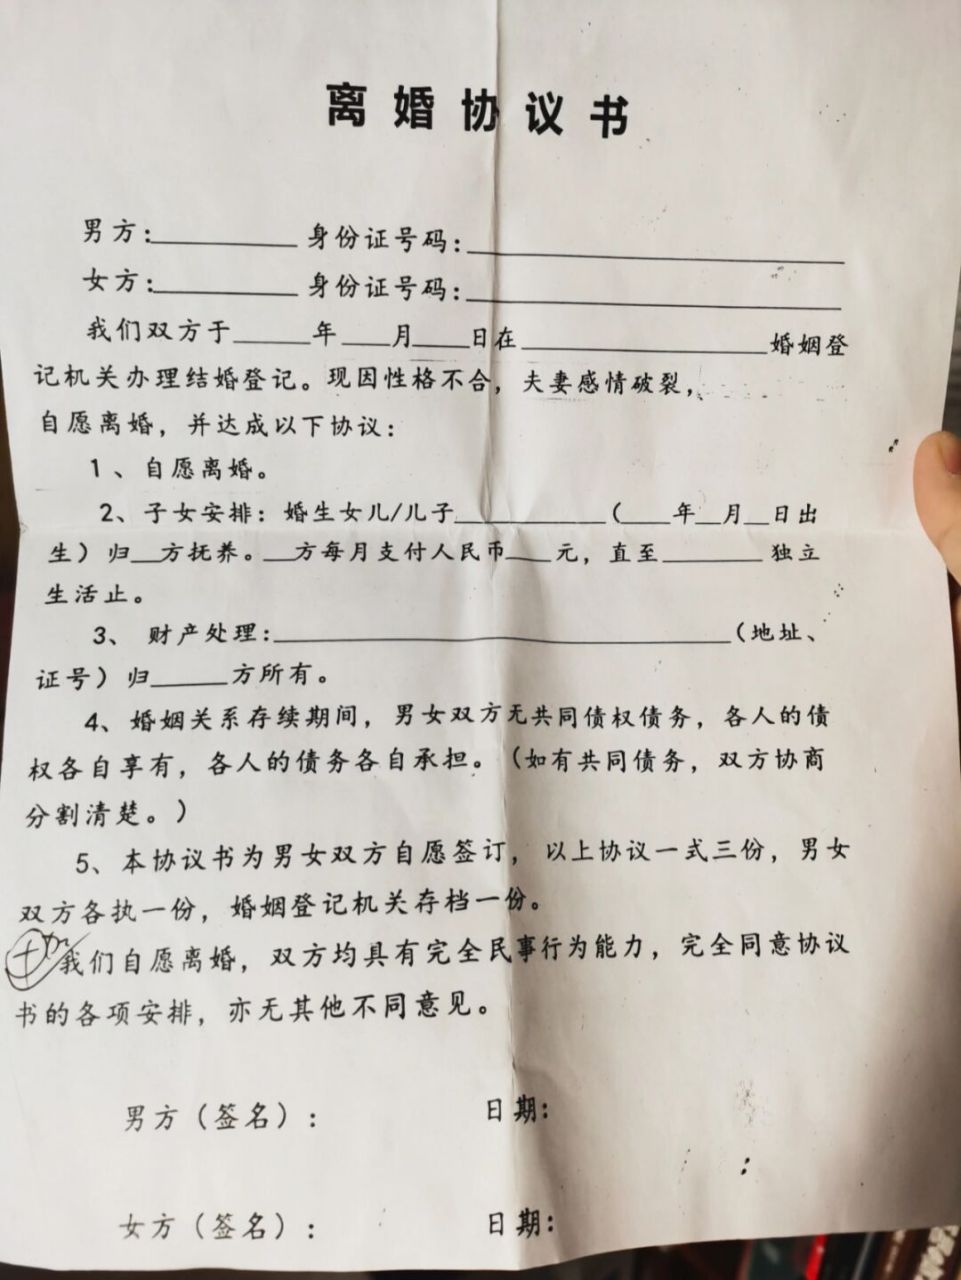 离婚协议书
男方:__________ 身份证号码:__________________________
女方:__________ 身份证号码:__________________________
我们双方于_____年___月____日在_________________婚姻登
记机关办理结婚登记。现因性格不合，夫妻感情破裂，
自愿离婚，并达成以下协议：
1、自愿离婚。
2、子女安排：婚生女儿/儿子__________（___年__月__日出
生）归__方抚养。__方每月支付人民币___元，直至_______独立
生活止。
3、 财产处理:________________________________（地址、
证号）归_____方所有。
4、婚姻关系存续期间，男女双方无共同债权债务，各人的债
权各自享有，各人的债务各自承担。（如有共同债务，双方协商
分割清楚。）
5、本协议书为男女双方自愿签订，以上协议一式三份，男女
双方各执一份，婚姻登记机关存档一份。
我们自愿离婚，双方均具有完全民事行为能力，完全同意协议
书的各项安排，亦无其他不同意见。
男方（签名）： 日期:
女方（签名）： 日期: